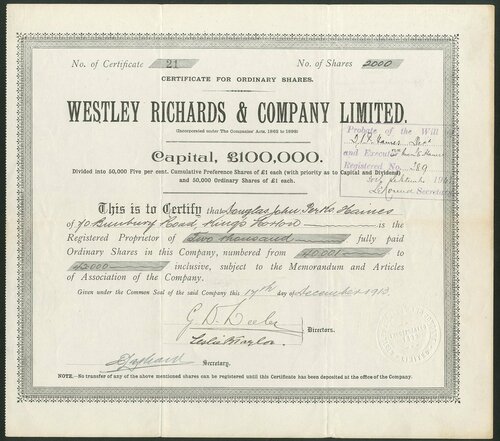 No. of Certificate 21 No. of Shares 2000
CERTIFICATE FOR ORDINARY SHARES.
WESTLEY RICHARDS & COMPANY LIMITED.
(Incorporated under The Companies' Acts, 1862 to 1898)
Capital, £100,000.
Divided into 50,000 Five per cent. Cumulative Preference Shares of £1 each (with priority as to Capital and Dividend)
and 50,000 Ordinary Shares of £1 each.
Probate of the Will
Haines Decd
and Executor
Registered No. 389
Secretary
This is to Certify that Douglas John Haines
of 70 Bunbury Road, Kings Norton is the
Registered Proprietor of Two thousand fully paid
Ordinary Shares in this Company, numbered from 40001 to
inclusive, subject to the Memorandum and Articles
of Association of the Company.
Given under the Common Seal of the said Company this 17th day of December 1913.
Directors.
Leslie B Taylor
Secretary.
NOTE.—No transfer of any of the above mentioned shares can be registered until this Certificate has been deposited at the office of the Company.